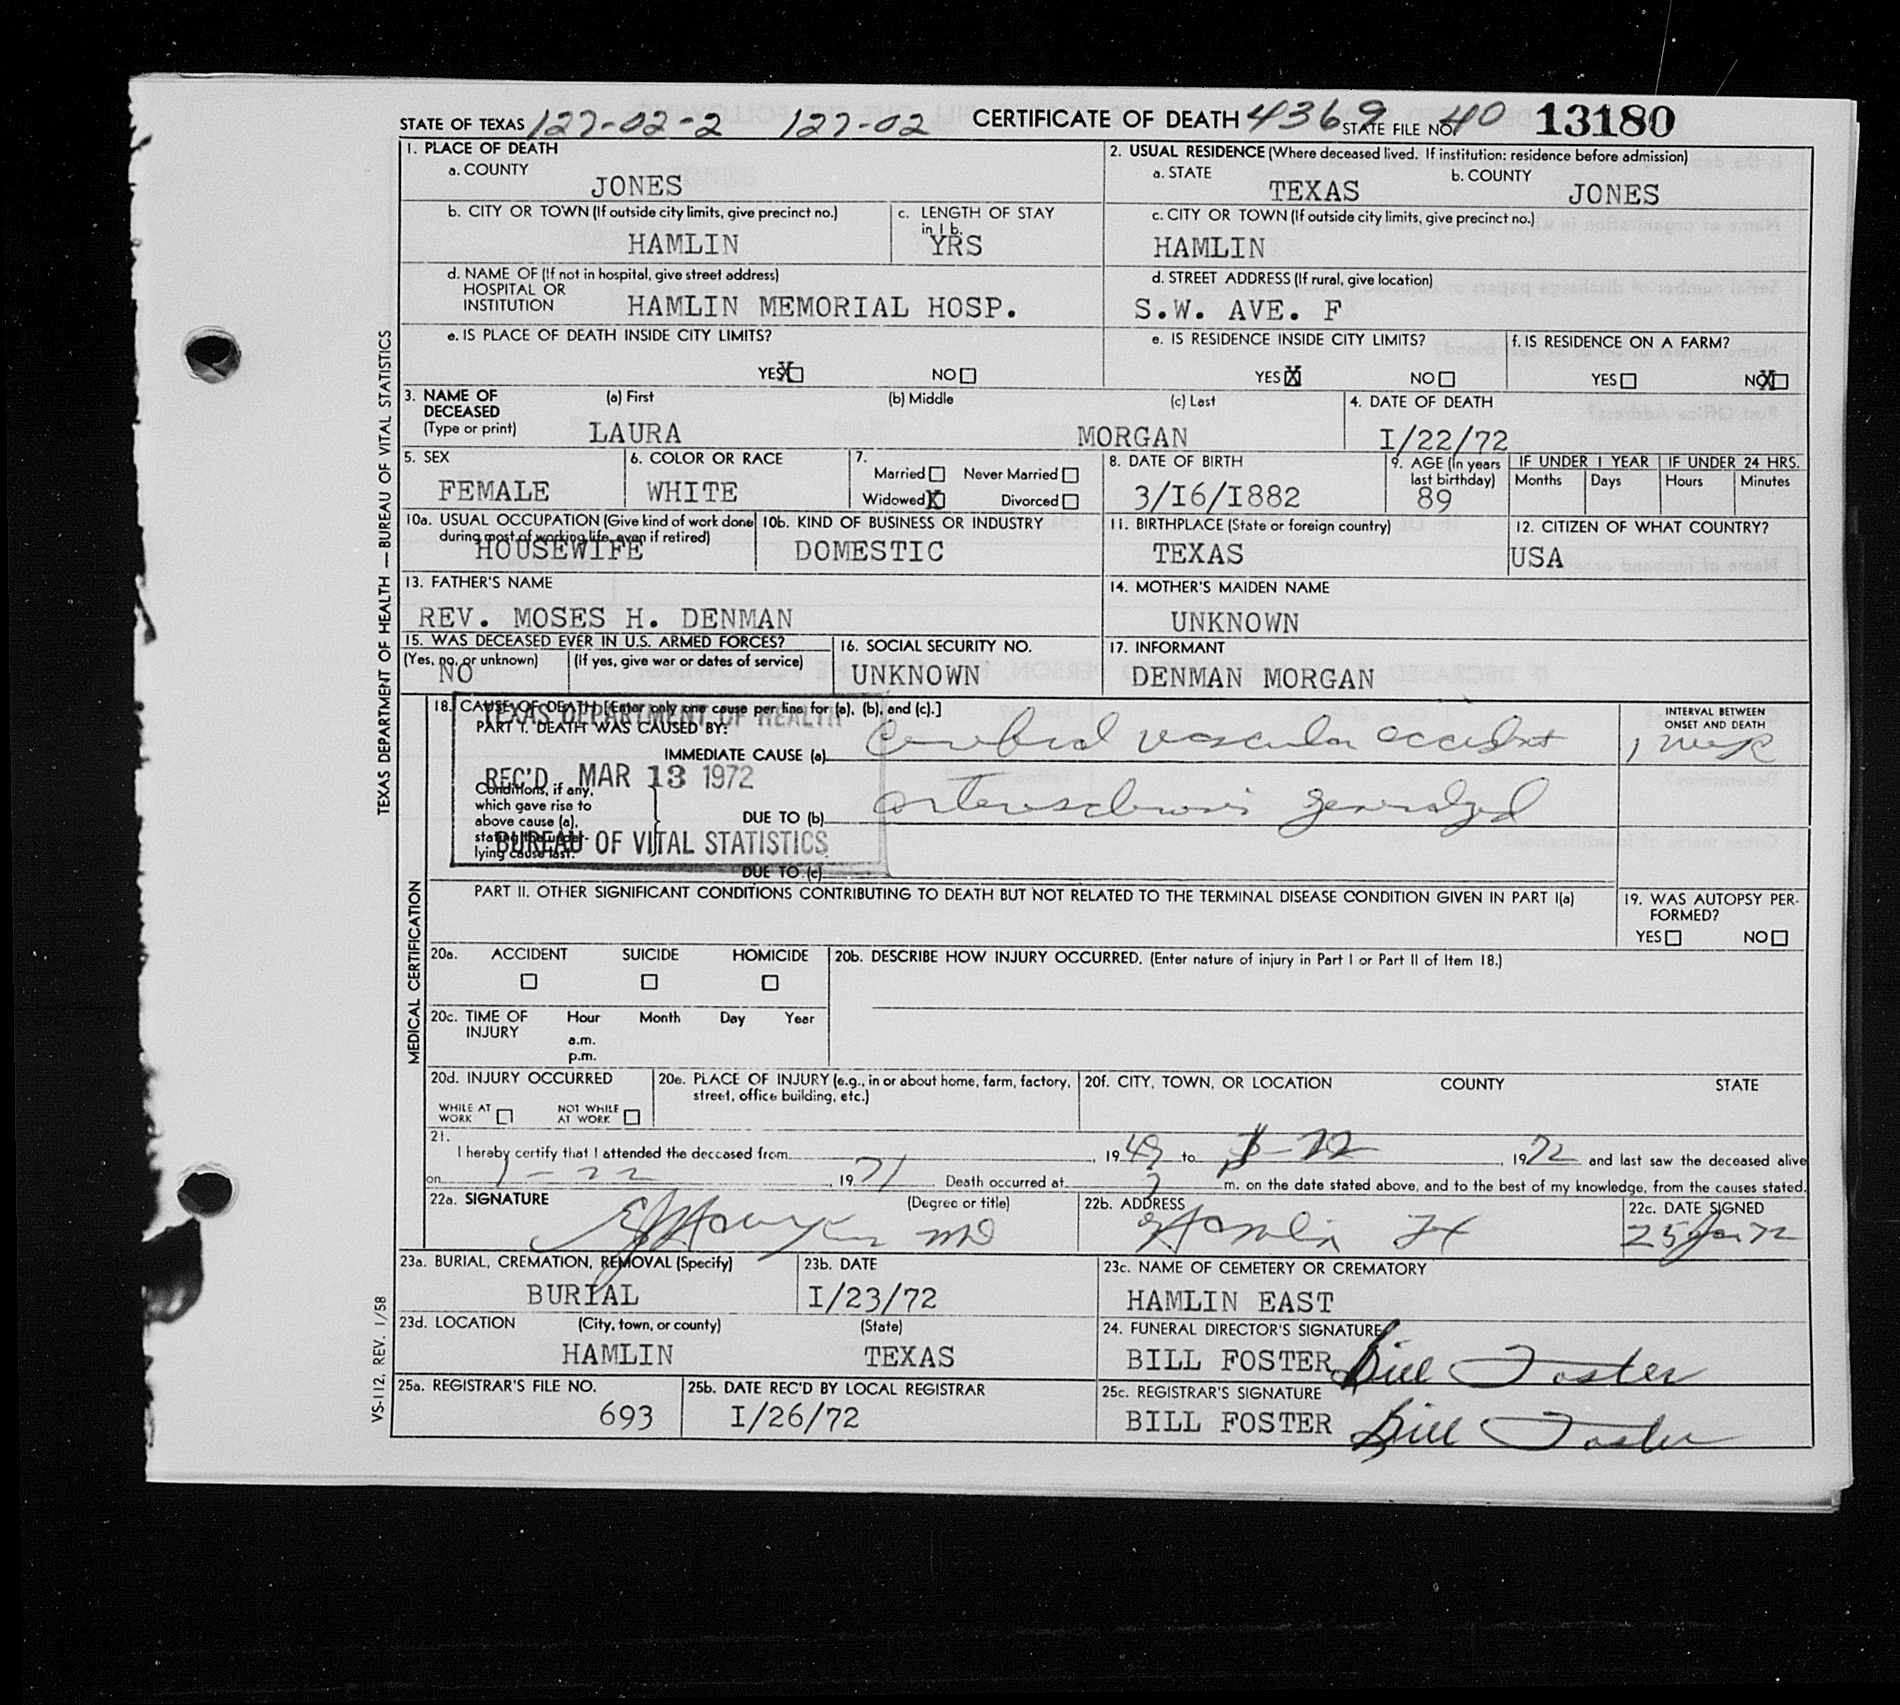 STATE OF TEXAS 127-02-2 127-02 CERTIFICATE OF DEATH 4369 STATE FILE NO. 40 13180
1. PLACE OF DEATH
a. COUNTY
JONES
2. USUAL RESIDENCE (Where deceased lived. If institution: residence before admission)
a. STATE b. COUNTY
TEXAS JONES
b. CITY OR TOWN (If outside city limits, give precinct no.)
HAMLIN
c. LENGTH OF STAY
in 1 b.
YRS
c. CITY OR TOWN (If outside city limits, give precinct no.)
HAMLIN
d. NAME OF (If not in hospital, give street address)
HOSPITAL OR
INSTITUTION HAMLIN MEMORIAL HOSP.
d. STREET ADDRESS (If rural, give location)
S.W. AVE. F
e. IS PLACE OF DEATH INSIDE CITY LIMITS?
YES X NO
e. IS RESIDENCE INSIDE CITY LIMITS?
YES X NO
f. IS RESIDENCE ON A FARM?
YES NO X
3. NAME OF
DECEASED
(Type or print)
(a) First (b) Middle (c) Last
LAURA MORGAN
4. DATE OF DEATH
I/22/72
5. SEX
FEMALE
6. COLOR OR RACE
WHITE
7.
Married Never Married
Widowed X Divorced
8. DATE OF BIRTH
3/I6/I882
9. AGE (In years
last birthday)
89
IF UNDER 1 YEAR IF UNDER 24 HRS.
Months Days Hours Minutes
10a. USUAL OCCUPATION (Give kind of work done
during most of working life, even if retired)
HOUSEWIFE
10b. KIND OF BUSINESS OR INDUSTRY
DOMESTIC
11. BIRTHPLACE (State or foreign country)
TEXAS
12. CITIZEN OF WHAT COUNTRY?
USA
13. FATHER'S NAME
REV. MOSES H. DENMAN
14. MOTHER'S MAIDEN NAME
UNKNOWN
15. WAS DECEASED EVER IN U.S. ARMED FORCES?
(Yes, no, or unknown) (If yes, give war or dates of service)
NO
16. SOCIAL SECURITY NO.
UNKNOWN
17. INFORMANT
DENMAN MORGAN
18. CAUSE OF DEATH [Enter only one cause per line for (a), (b), and (c).]
TEXAS DEPARTMENT OF HEALTH
PART I. DEATH WAS CAUSED BY:
IMMEDIATE CAUSE (a) Cerebral vascular accident
INTERVAL BETWEEN
ONSET AND DEATH
1 week
REC'D MAR 13 1972
Conditions, if any,
which gave rise to
above cause (a),
stating the under-
lying cause last.
DUE TO (b) arteriosclerosis generalized
BUREAU OF VITAL STATISTICS
DUE TO (c)
PART II. OTHER SIGNIFICANT CONDITIONS CONTRIBUTING TO DEATH BUT NOT RELATED TO THE TERMINAL DISEASE CONDITION GIVEN IN PART I(a)
19. WAS AUTOPSY PER-
FORMED?
YES NO
20a. ACCIDENT SUICIDE HOMICIDE
20b. DESCRIBE HOW INJURY OCCURRED. (Enter nature of injury in Part I or Part II of Item 18.)
20c. TIME OF
INJURY
Hour Month Day Year
a.m.
p.m.
20d. INJURY OCCURRED
WHILE AT
WORK
NOT WHILE
AT WORK
20e. PLACE OF INJURY (e.g., in or about home, farm, factory,
street, office building, etc.)
20f. CITY, TOWN, OR LOCATION COUNTY STATE
21.
I hereby certify that I attended the deceased from , 1949 to 1-22 , 1972 and last saw the deceased alive
on 1-22 , 1971 . Death occurred at m. on the date stated above, and to the best of my knowledge, from the causes stated.
22a. SIGNATURE (Degree or title)
MD
22b. ADDRESS
Hamlin Tx
22c. DATE SIGNED
25 Jan 72
23a. BURIAL, CREMATION, REMOVAL (Specify)
BURIAL
23b. DATE
I/23/72
23c. NAME OF CEMETERY OR CREMATORY
HAMLIN EAST
23d. LOCATION (City, town, or county) (State)
HAMLIN TEXAS
24. FUNERAL DIRECTOR'S SIGNATURE
BILL FOSTER Bill Foster
25a. REGISTRAR'S FILE NO.
693
25b. DATE REC'D BY LOCAL REGISTRAR
I/26/72
25c. REGISTRAR'S SIGNATURE
BILL FOSTER Bill Foster
TEXAS DEPARTMENT OF HEALTH — BUREAU OF VITAL STATISTICS
MEDICAL CERTIFICATION
VS-112, REV. 1/58